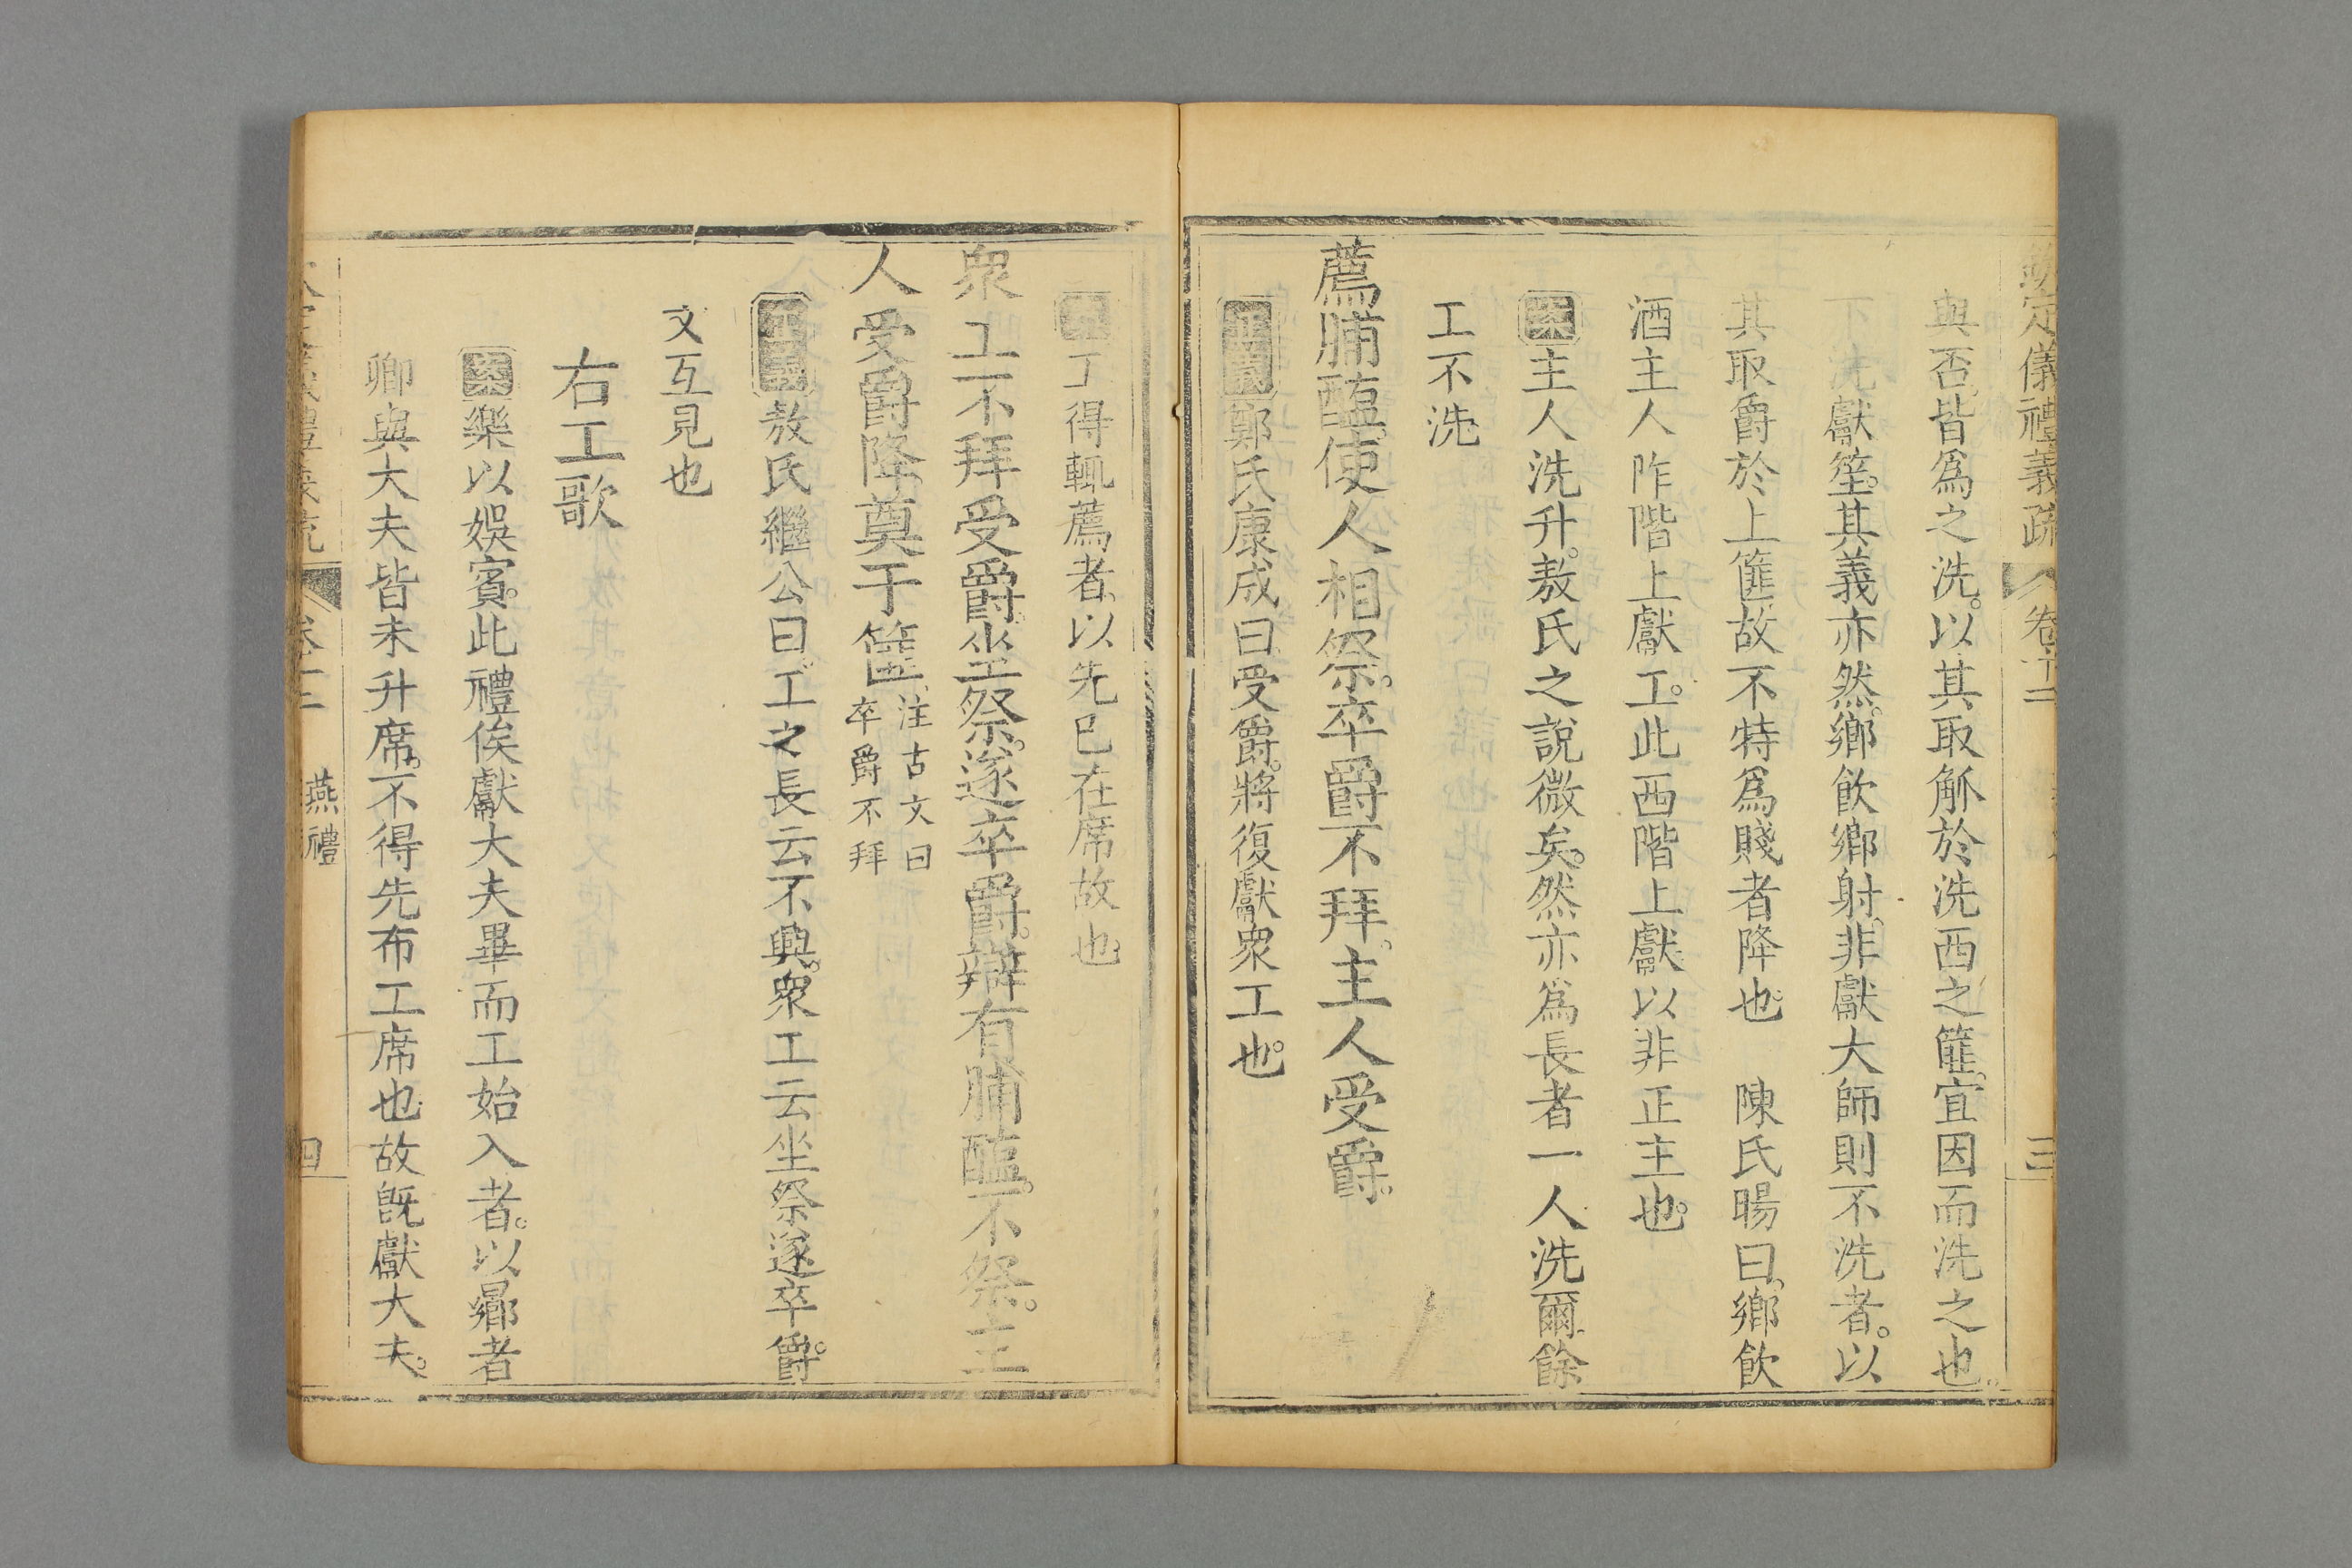 欽定儀禮義疏 卷十二 三
與否皆爲之洗。以其取觶於洗西之篚。宜因而洗之也。
下洗獻笙。其義亦然。鄉飲鄉射。非獻大師則不洗者。以
其取爵於上篚。故不特爲賤者降也 陳氏暘曰。鄉飲
酒主人阼階上獻工。此西階上獻。以非正主也。
案主人洗升。敖氏之說微矣。然亦爲長者一人洗爾。餘
工不洗
薦脯醢。使人相祭。卒爵不拜。主人受爵。
正義鄭氏康成曰受爵。將復獻衆工也。
案工得輒薦者。以先已在席故也
衆工不拜受爵。坐祭。遂卒爵。辯有脯醢。不祭。主
人受爵降奠于篚。注古文曰卒爵不拜
正義敖氏繼公曰。工之長。云不興。衆工云坐祭遂卒爵。
文互見也
右工歌
案樂以娛賓。此禮俟獻大夫畢而工始入者。以鄉者
卿與大夫皆未升席。不得先布工席也。故旣獻大夫。
燕禮 四